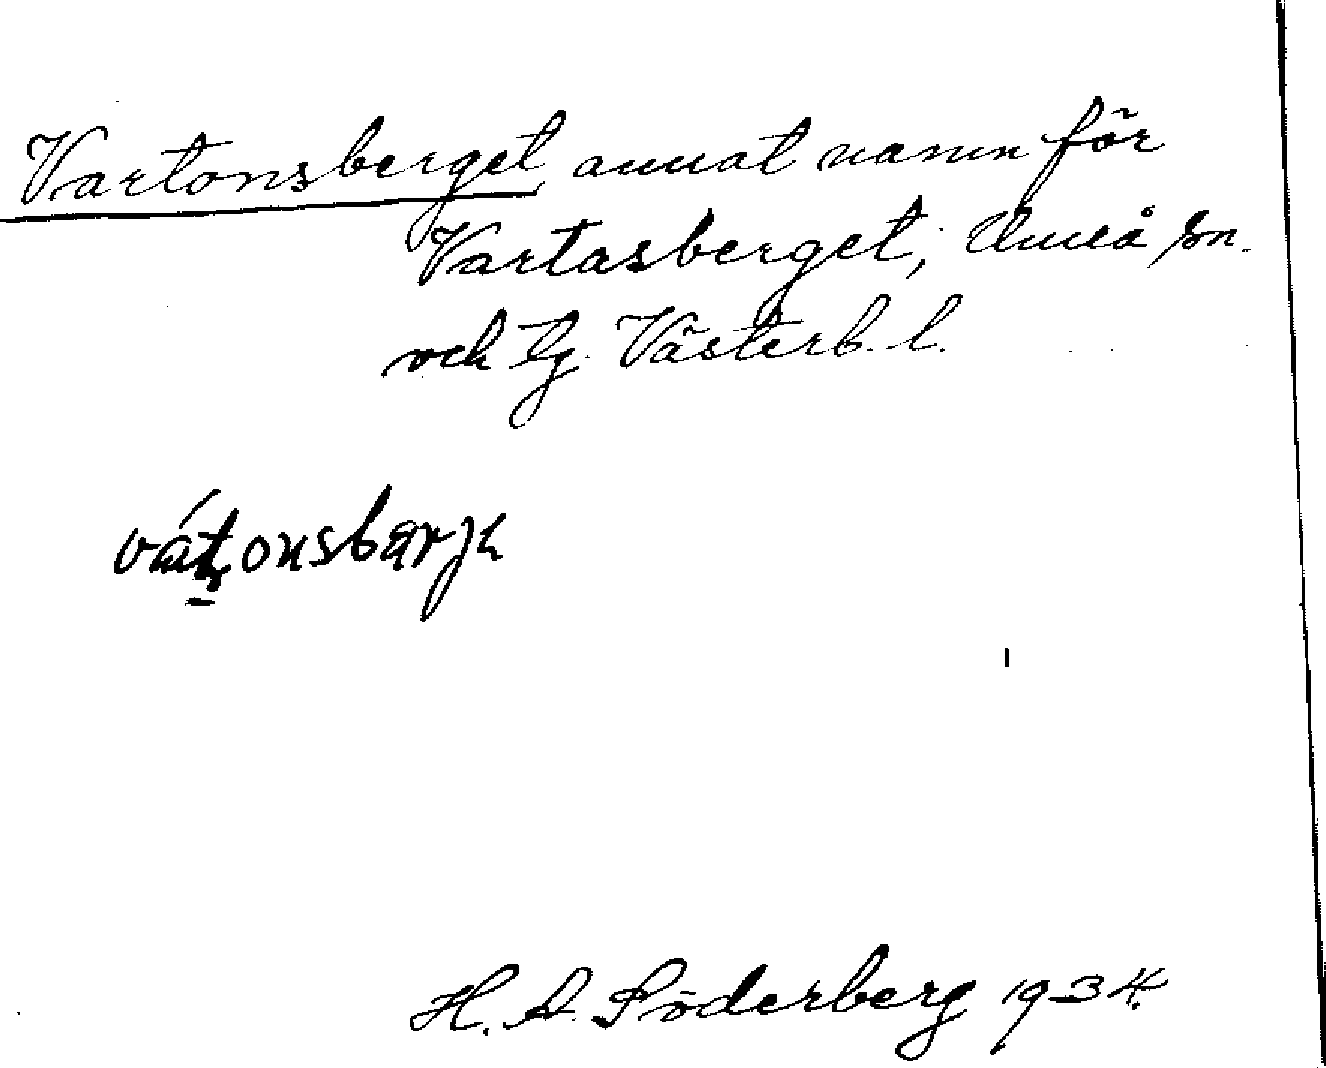 Vartonsberget annat namn för
Vartasberget, Umeå sn.
och tg. Västerb. l.
H. A. Söderberg 1934.